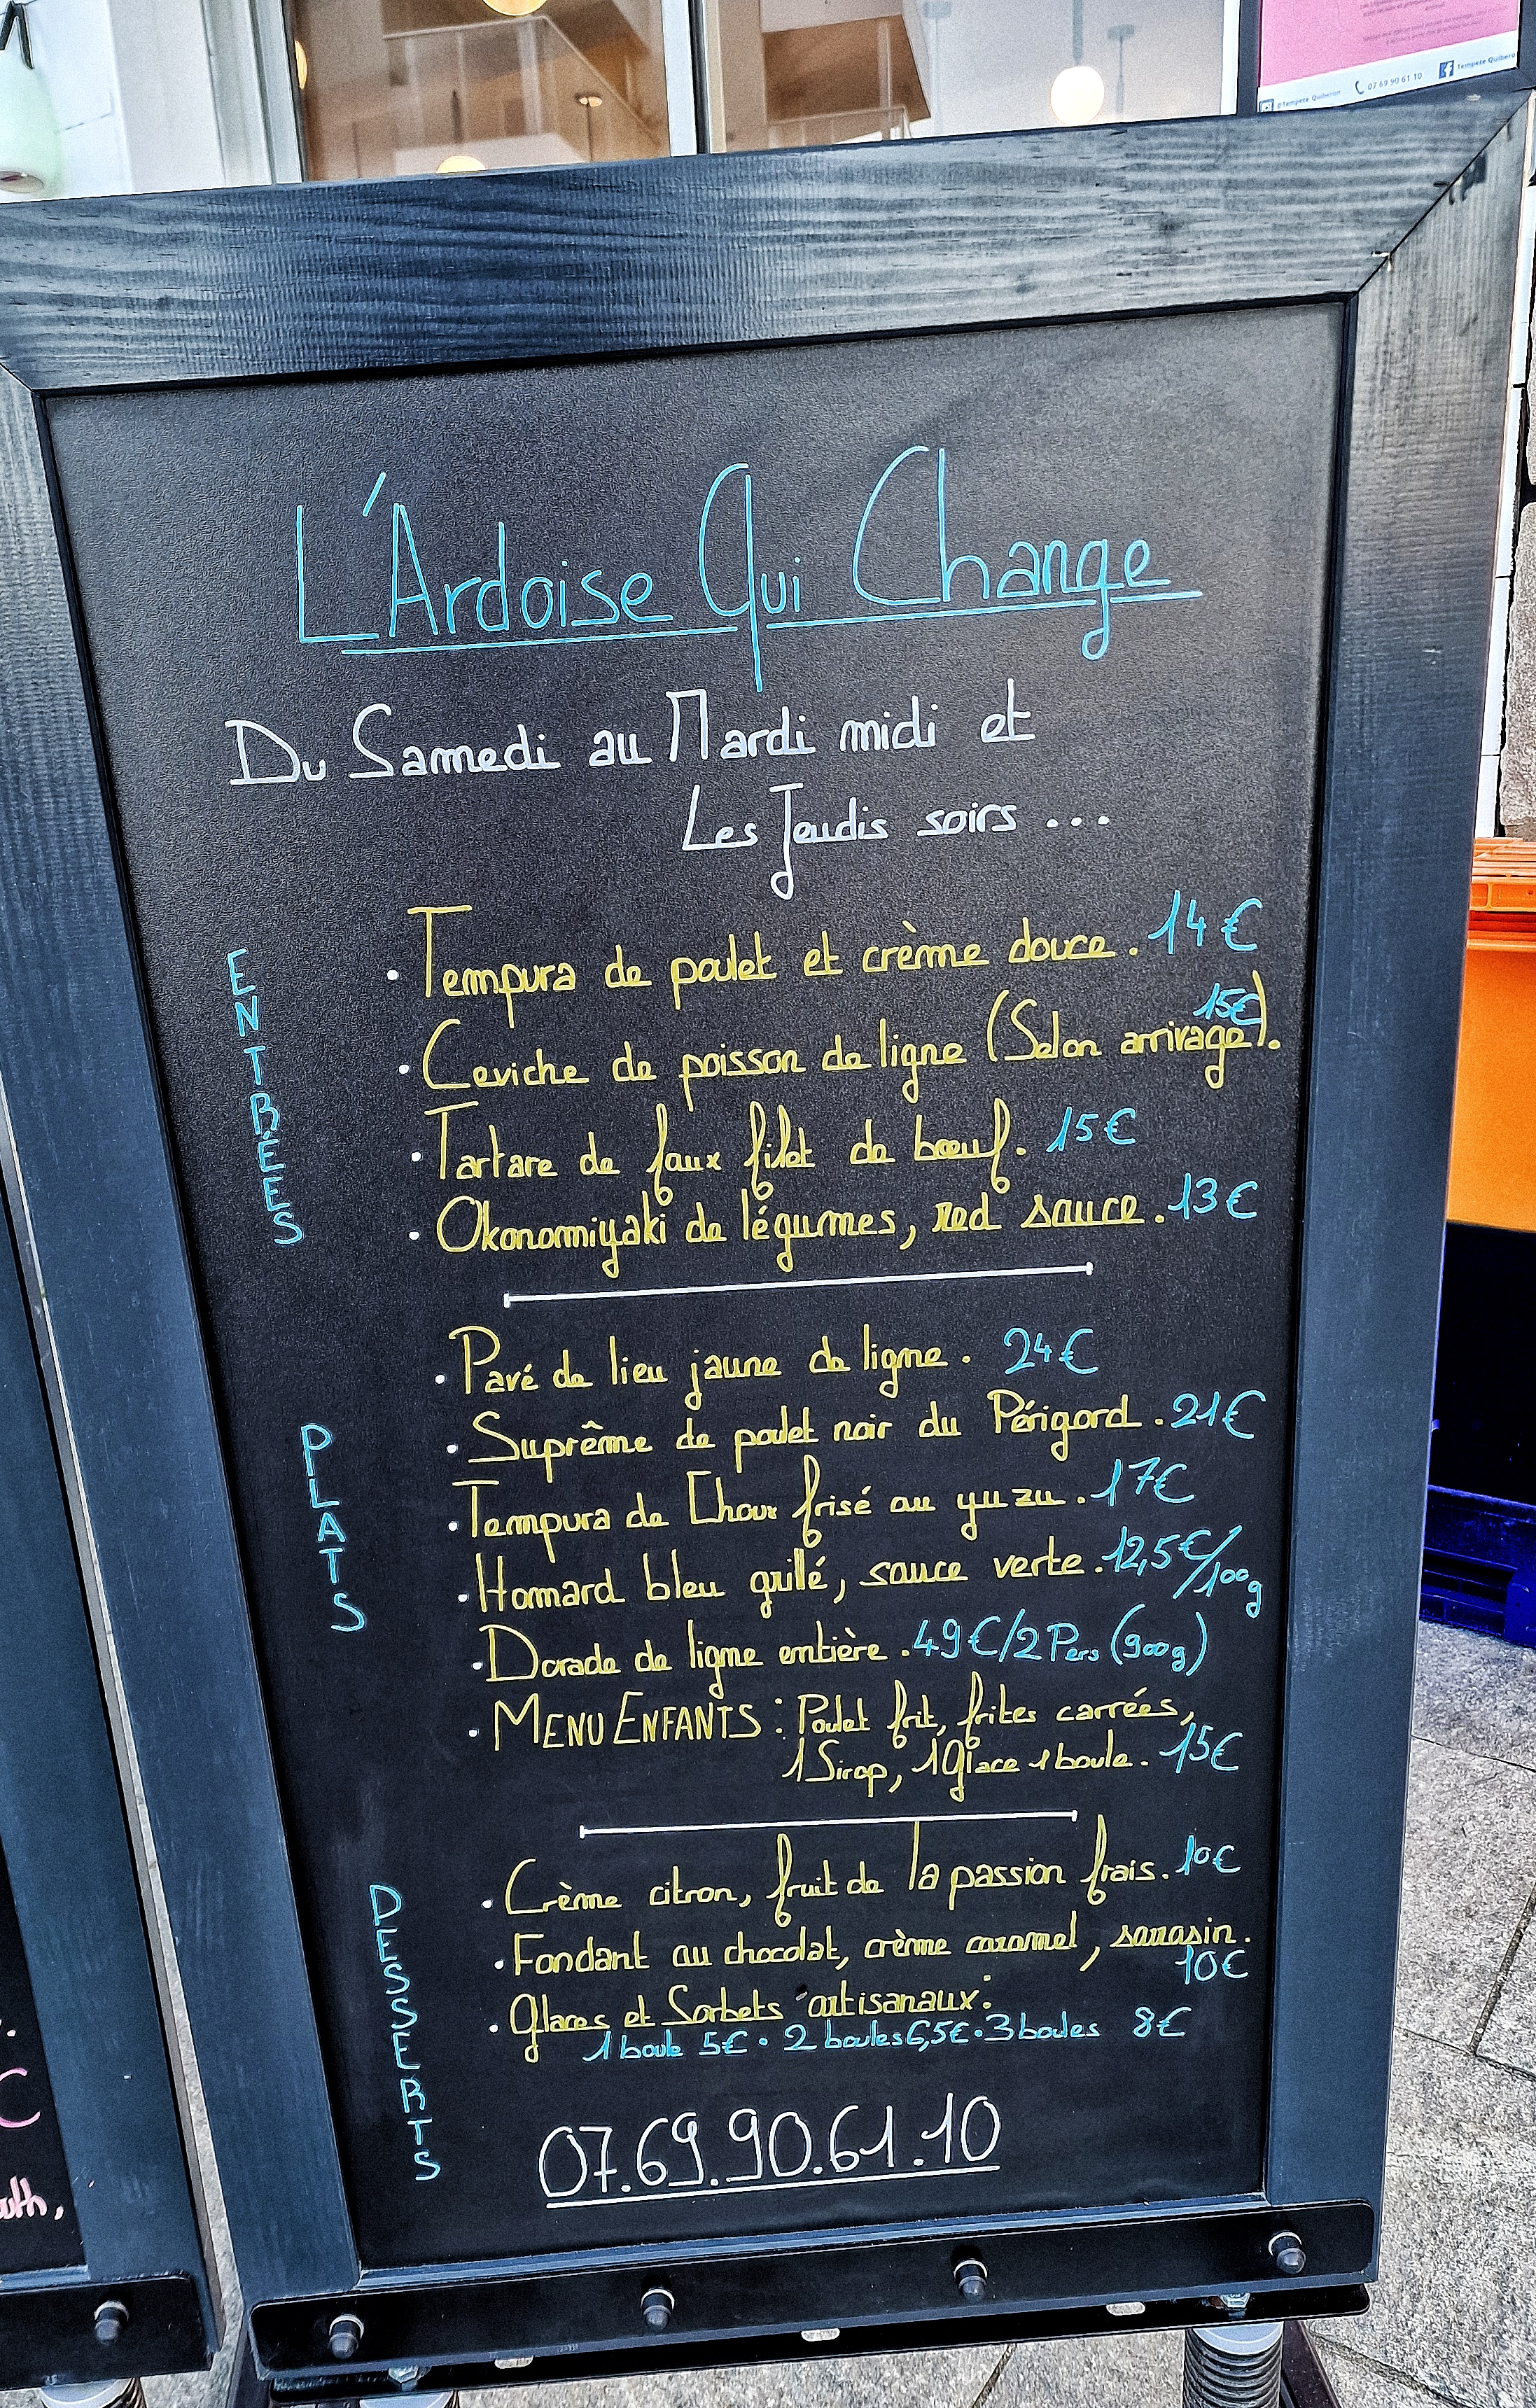 @Tempete Quiberon 07 69 90 61 10 Tempete Quiberon
L'Ardoise Qui Change
Du Samedi au Mardi midi et
Les Jeudis soirs ...
ENTRÉES
• Tempura de poulet et crème douce. 14€
• Ceviche de poisson de ligne (Selon arrivage). 15€
• Tartare de faux filet de bœuf. 15€
• Okonomiyaki de légumes, red sauce. 13€
PLATS
• Pavé de lieu jaune de ligne. 24€
• Suprême de poulet noir du Périgord. 21€
• Tempura de Choux frisé au yuzu. 17€
• Hommard bleu grillé, sauce verte. 12,5€/100g
• Dorade de ligne entière. 49€/2 Pers (900g)
• MENU ENFANTS : Poulet frit, frites carrées,
1 Sirop, 1 Glace 1 boule. 15€
DESSERTS
• Crème citron, fruit de la passion frais. 10€
• Fondant au chocolat, crème caramel, sarrasin.
10€
• Glaces et Sorbets "artisanaux":
1 boule 5€ • 2 boules 6,5€ • 3 boules 8€
07.69.90.61.10